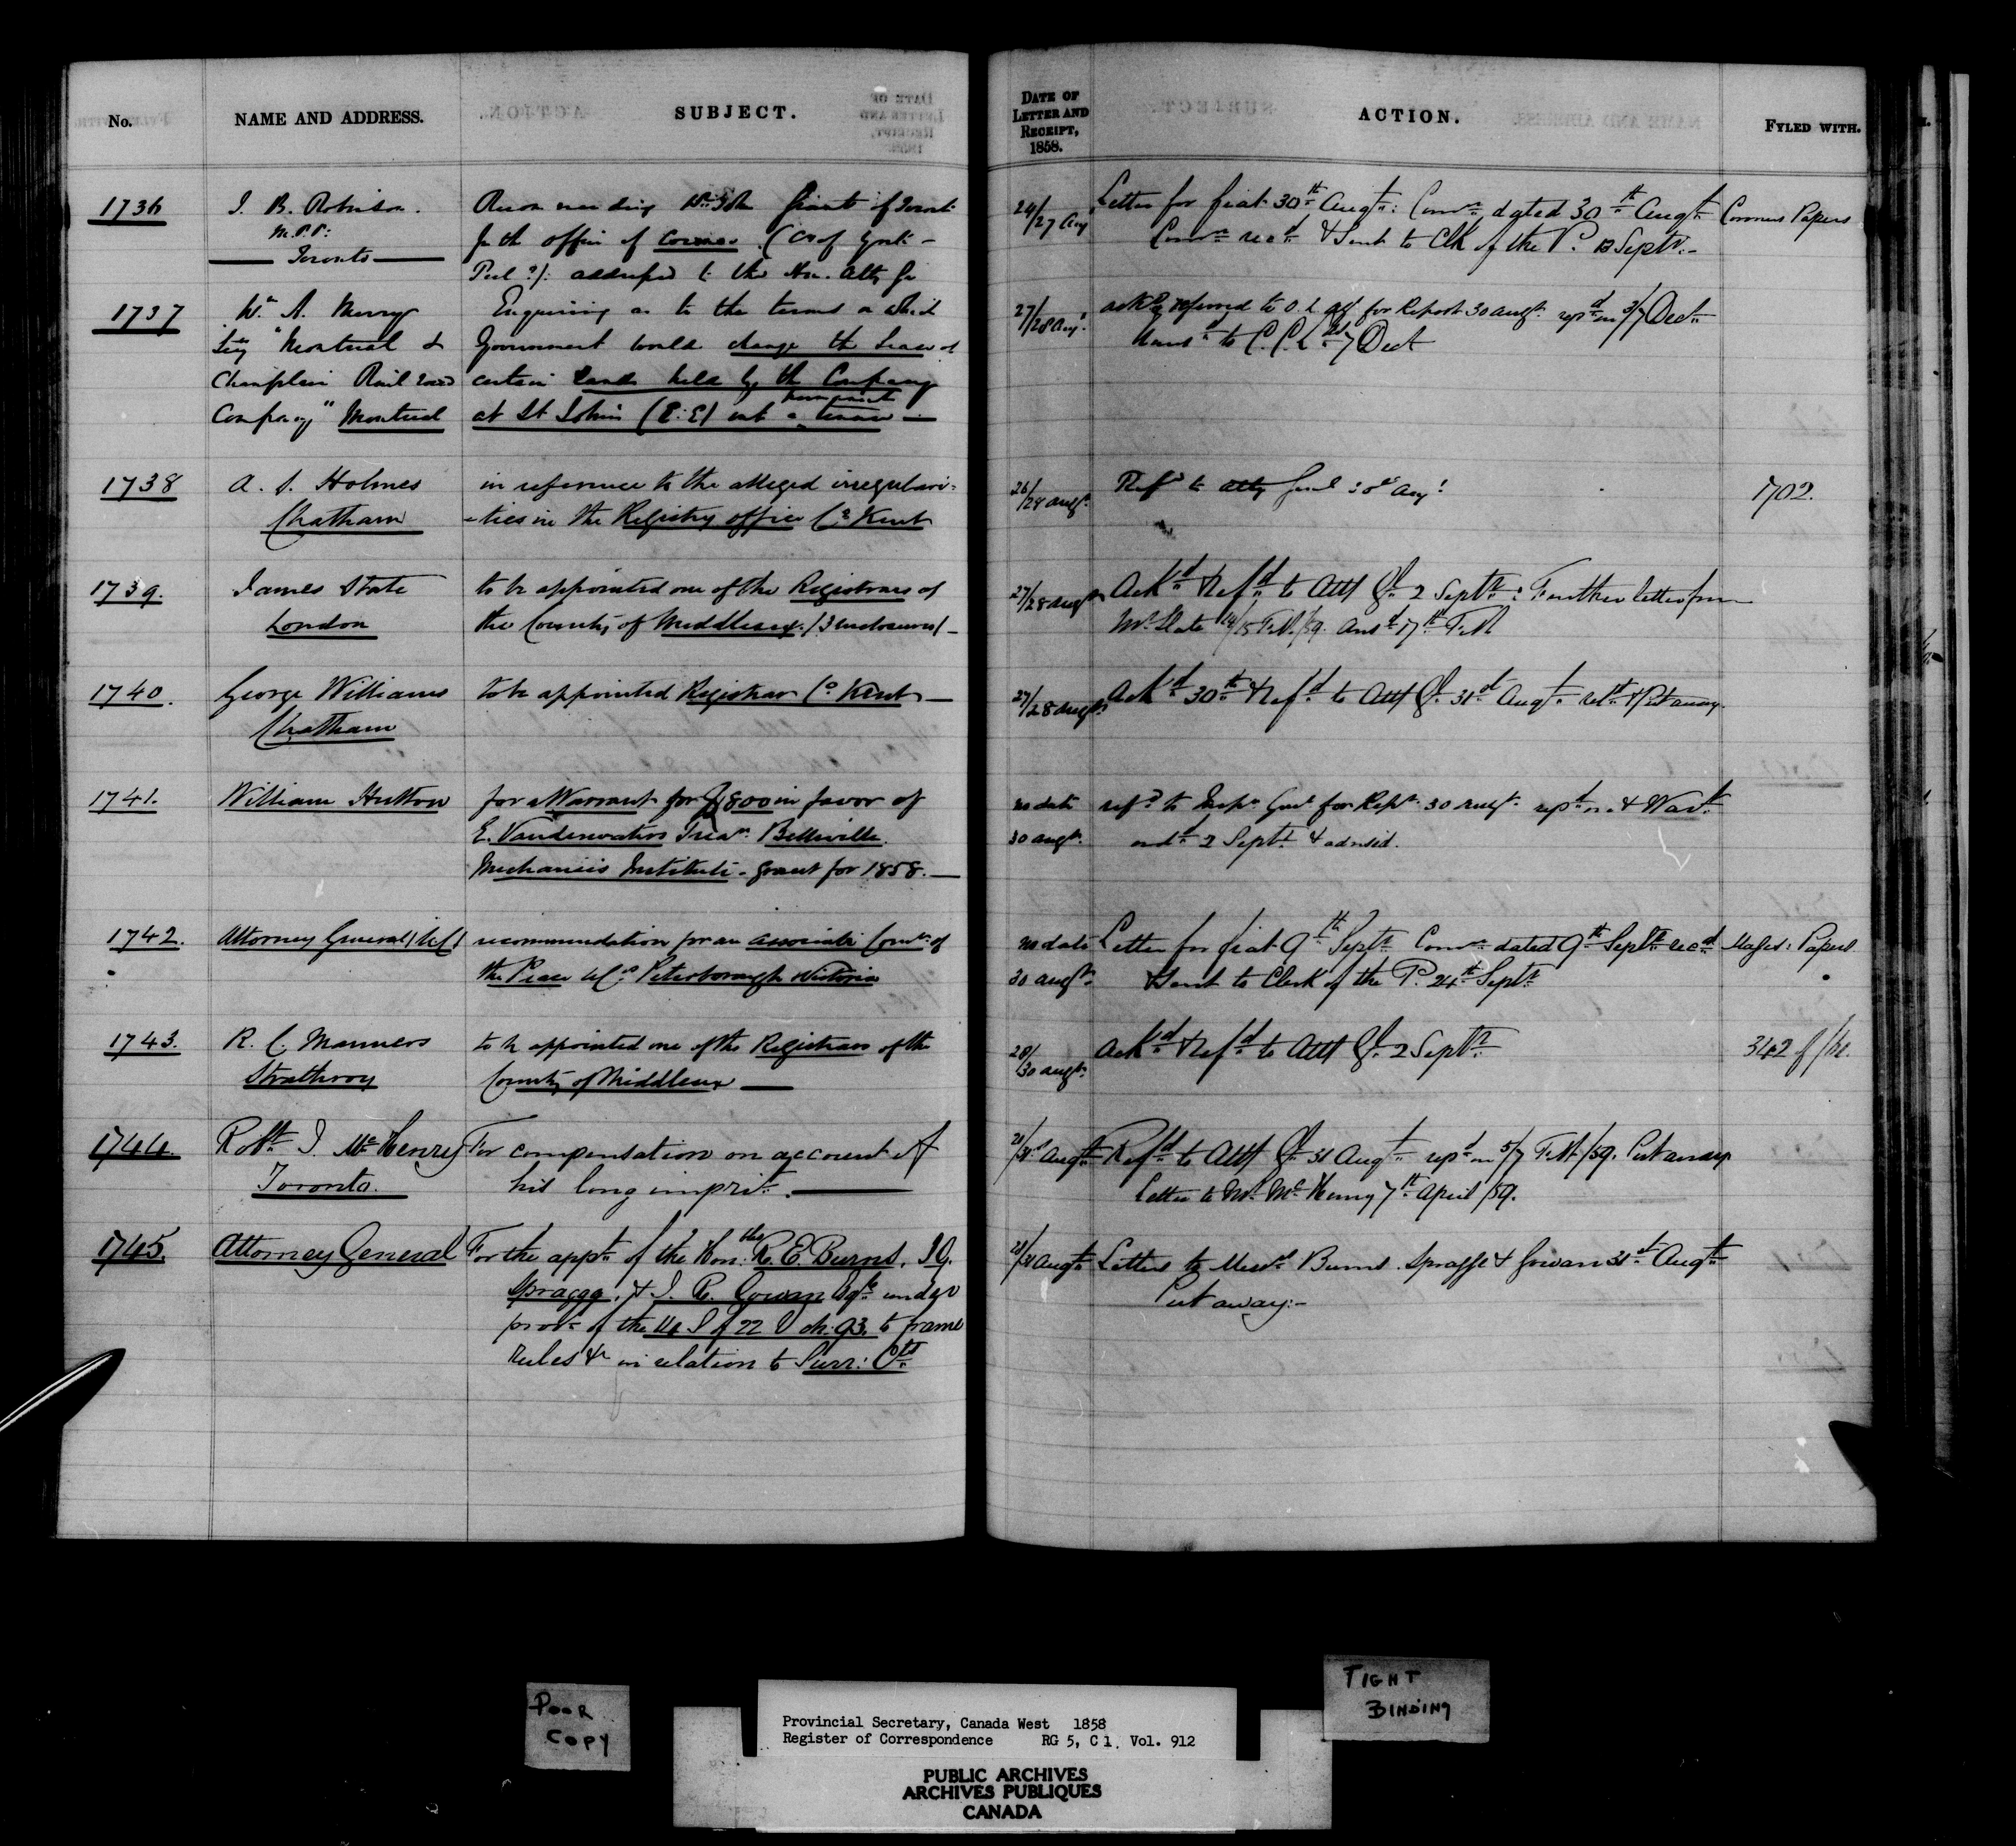 No. NAME AND ADDRESS. SUBJECT.
DATE OF LETTER AND RECEIPT, 1858. ACTION. FYLED WITH.
1736
J. B. Robinson.
M.P.P.
Toronto
Recommending Wm John of Toronto
for the office of Coroner. (Co of York
Peel?): addressed to the Hon. Atty Gen
24/27 Aug
Letter for fiat 30th Augt: Comn dated 30th Augt
Comn recd & Sent to Clk of the P. 13 Septr.
Coroners Papers
1737
Wm A. Merry
Secy "Montreal &
Champlain Rail road
Company" Montreal
Enquiring as to the terms on which
Government would change the Lease of
certain lands held by the Company
at St Johns (C.E) into a permanent tenure
27/28 Augt
ackd & referred to O. L. off for Report 30 augt. repd on 3/7 Dect
transd to C.C.L. 7 Dect
1738
A. S. Holmes
Chatham
in reference to the alleged irregulari-
-ties in the Registry office Co Kent
26/28 augt.
Refd to Atty Genl 30th Augt
1702.
1739.
James State
London
to be appointed one of the Registrars of
the County of Middlesex. (3 enclosures)
27/28 augt
Ackd & Refd to Atty Gl. 2 Septr: Further letter from
Mr. State 14/15 Feb./59. Ansd 17th Feb.
1740.
George Williams
Chatham
to be appointed Registrar Co Kent
27/28 augt
Ackd 30th & Refd to Atty Gl. 31st Augt retd & Put away.
1741.
William Hutton
for a Warrant for $800 in favor of
E. Vandervaters Treasr. Belleville
Mechanics Institute - grant for 1858.
no date
30 augt.
refd to Inspr Genl for Rept. 30 augt. repd on & Wart
ordd 2 Septr. & advised.
1742.
Attorney General (U.C)
recommendation for an associate Comn of
the Peace U Cs Peterborough & Victoria
no date
30 augt.
Letter for fiat 9th Septr Comn dated 9th Septr recd
& Sent to Clerk of the P. 24th Septr
Mages: Papers
1743.
R. C. Manners
Strathroy
to be appointed one of the Registrars of the
County of Middlesex
28/30 augt.
Ackd & Refd to Atty Gl. 2 Septr.
342 of /62.
1744.
Robt. J. McHenry
Toronto.
For compensation on account of
his long imprist.
28/31st Augt
Refd to Atty Gl. 31 Augt repd on 5/7 Feb./59. Put away
Letter to Mr. McHenry 7th April /59.
1745.
Attorney General
For the appt of the Honble R. E. Burns, J.G.
Spragge, & J. R. Gowan Esqrs under
provs of the 14 S of 22 V ch: 93. to frame
rules &c in relation to Surr: Cts
28/31 Augt
Letters to Messrs Burns. Spragge & Gowan 31st Augt
Put away:-
POOR
COPY
TIGHT
BINDING
Provincial Secretary, Canada West 1858
Register of Correspondence RG 5, C 1, Vol. 912
PUBLIC ARCHIVES
ARCHIVES PUBLIQUES
CANADA